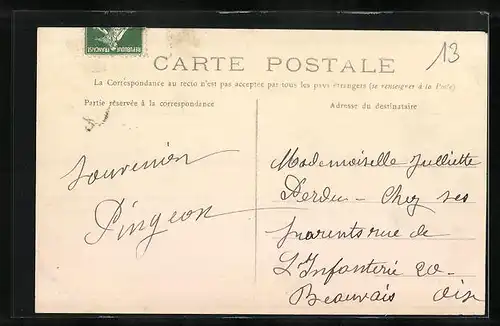 REPUBLIQUE FRANÇAISE
13
CARTE POSTALE
La Correspondance au recto n'est pas acceptée par tous les pays étrangers (se renseigner à la Poste)
Partie réservée à la correspondance
Adresse du destinataire
Souvenir
Pingeon
Mademoiselle Julliette
Derdu - Chez ses
parents rue de
L'Infanterie 20-
Beauvais Oise